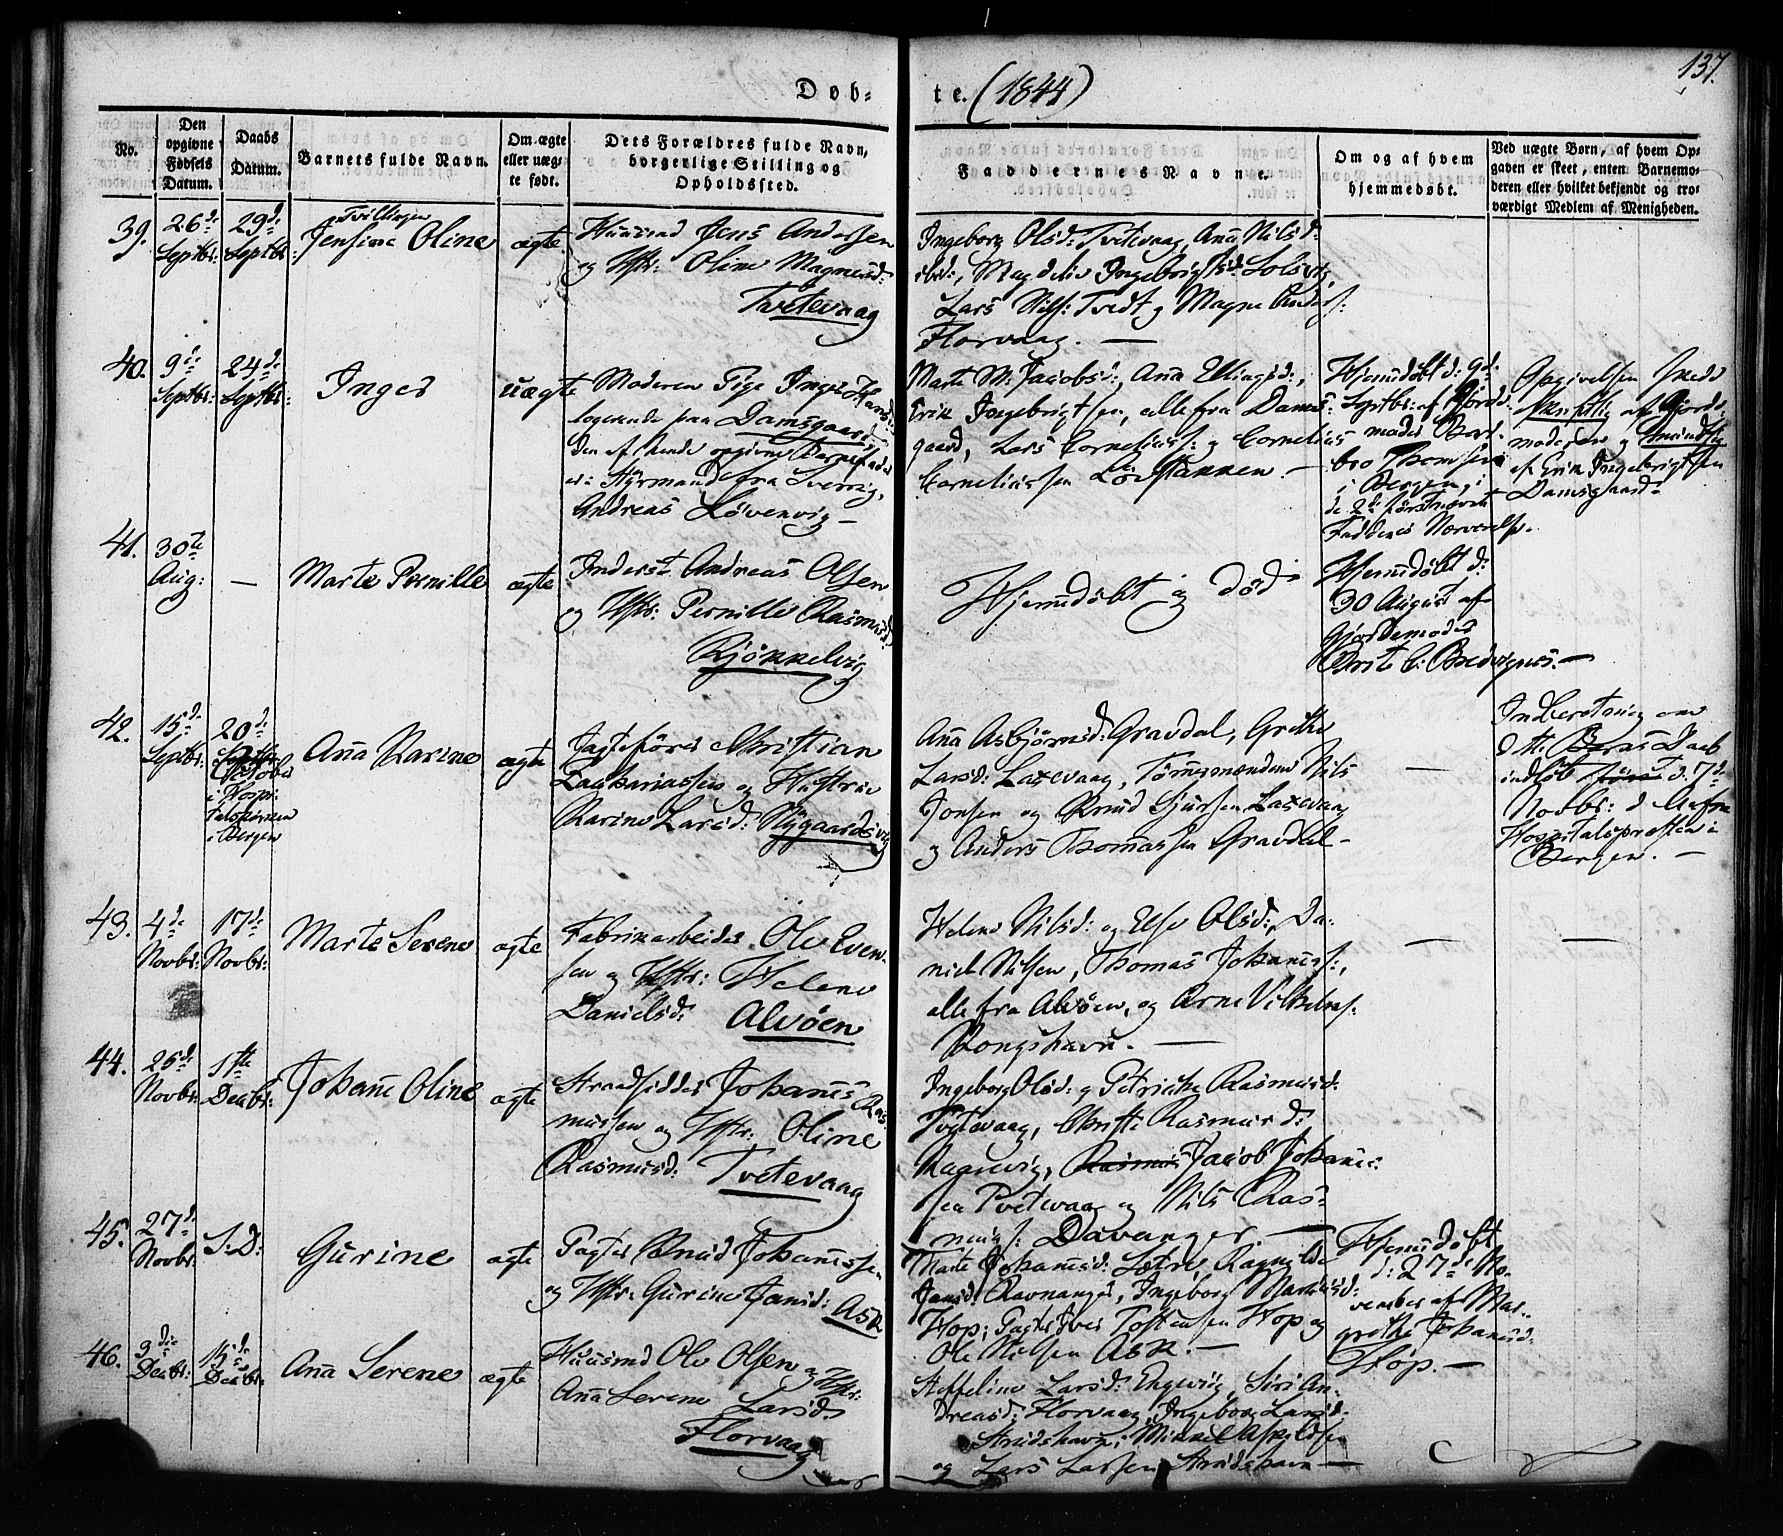 137.
Døb-
te. (1844)
No.
Den opgivne Fødsels Datum.
Daabs Datum.
Barnets fulde Navn.
Om ægte eller uægte født.
Dets Forældres fulde Navn, borgerlige Stilling og Opholdssted.
Faddernes Navne.
Om og af hvem hjemmedøbt.
Ved uægte Børn, af hvem Opgaven er skeet, enten Barnemoderen eller hvilket bekjendt og troværdigt Medlem af Menigheden.
39.
26de
Septbr:
29de
Septbr:
Tvillinger
Jensine Oline
ægte
Huusmd Jens Andersen
og Hstr: Oline Magnusd:
Tvetevaag
Ingeborg Olsd: Tvetevaag, Anna Nilsd:
ibid:, Magdeli Ingebrigtsd: Solsvig,
Lars Nils: Tvedt og Magne Anders:
Florvaag. —
40.
9de
Septbr:
24de
Septbr:
Inger
uægte
Moderen Pige Inger Hansd:
logerende paa Damsgaard,
den af hende opgivne Barnefader
er: Styrmand fra Sverrig,
Andreas Lövenvig —
Marte M: Jacobsd:, Anna Ellingsd:,
Erik Ingebrigtsen, alle fra Dams-
gaard, Lars Cornelius: og Cornelius
Corneliussen Lövstakken —
Hjemdöbt d: 9de
Septbr: af Gjord-
moder Ber-
Thomsen
i Bergen, i
de 2de förstnævnte
Faddere Nærværelse.
Opgivelsen skeede
skriftlig af Gjord-
moderen og mundtlig
af Erik Ingebrigtsen
Damsgaard:
41.
30te
Aug:
—
Marte Pernille
ægte
Inderst Andreas Olsen
og Hstr: Pernille Rasmusd:
Kjökkelvig
Hjemdöbt og död
Hjemdöbt d:
30 August af
Gjordemoder
Brite C: Bredesgnes. —
42.
15de
Septbr:
20de
Octobr
i Hospi-
talskirken
i Bergen
Anna Karine
ægte
Jagteförer Christian
Zachariassen og Hustrue
Karine Larsd: Nygaardsvig
Anna Asbjörnsd: Gravdal, Grethe
Larsd: Laxevaag, Tömmermændene Nils
Jonsen og Knud Sjursen Laxevaag
og Anders Thomassen Gravdal —
Indberetning om
dette Barns Daab
indlöb d. 7de
Novbr: d A fra
Hospitalspræsten i
Bergen. —
43.
4de
Novbr:
17de
Novbr:
Marte Serene
ægte
Fabrikarbeider Ole Even-
sen og Hstr: Helene
Danielsd: Alvöen
Helene Nilsd: og Else Olsd:, Da-
niel Nilsen, Thomas Johannes:,
alle fra Alvöen, og Arne Vilhelms:
Kongshavn. —
—
—
44.
26de
Novbr:
1ste
Decbr:
Johanne Oline
ægte
Strandsidder Johannes Ras-
mussen og Hstr: Oline
Rasmusd: Tvetevaag
Ingeborg Olsd: og Petriche Rasmusd:
Tvetevaag, Christi Rasmusd:
Rasmus Jacob Johannes-
sen Tvetevaag og Nils Ras-
mus: Davanger. —
45.
27de
Novbr:
S: D:
Gurine
ægte
Pagter Knud Johannessen
og Hstr: Gurine Jansd: Ask
Marte Johannesd: Sætre, Ragnilde
Jansd: Ravnanger, Ingeborg Martinsd:
Hop, Pagter Iver Tostensen Hop og
Ole Nielsen Ask. —
Hjemdøbt
d: 27de No-
vember af Mar-
grethe Johannesd:
Hop. —
46.
3die
Decbr:
15de
Decbr:
Anna Serene
ægte
Huusmd Ole Olsen og Hstr:
Anna Serene Larsd:
Florvaag
Steffeline Larsd: Engevig, Siri An-
dreasd: Florvaag, Ingeborg Larsd:
Strudshavn, Mikkel Askildsen
og Lars Larsen Strudshavn —